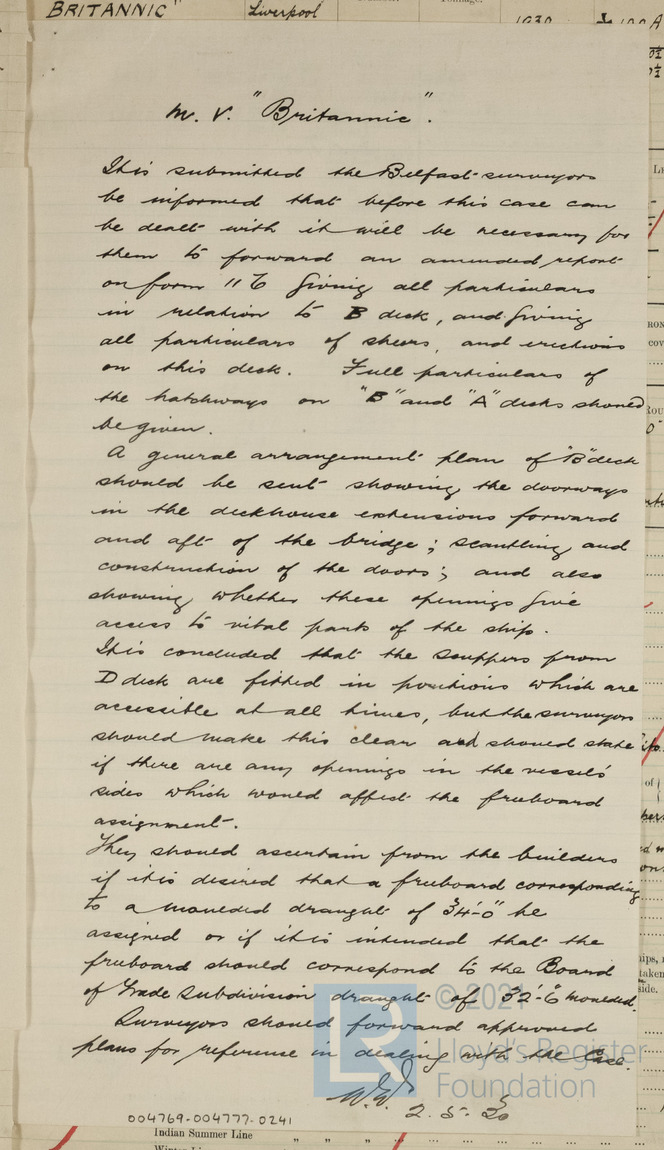 BRITANNIC"
Liverpool
Tonnage.
1930
M. V. "Britannic".
It is submitted the Belfast surveyors
be informed that before this case can
be dealt with it will be necessary for
them to forward an amended report
on form 11 giving all particulars
in relation to B deck, and giving
all particulars of sheers, and erections
on this deck. Full particulars of
the hatchways on "B" and "A" decks should
be given.
A general arrangement plan of "B" deck
should be sent showing the doorways
in the deckhouse extensions forward
and aft of the bridge; scantling and
construction of the doors; and also
showing whether these openings give
access to vital parts of the ship.
It is concluded that the scuppers from
D deck are fitted in positions which are
accessible at all times, but the surveyors
should make this clear and should state
if there are any openings in the vessel's
sides which would affect the freeboard
assignment.
They should ascertain from the builders
if it is desired that a freeboard corresponding
to a moulded draught of 34'-0" be
assigned or if it is intended that the
freeboard should correspond to the Board
of Trade subdivision draught of 32'-6" moulded.
Surveyors should forward approved
plans for reference in dealing with the case.
2.5.30
© 2021
Lloyd's Register
Foundation
LR
004769-004777-0241
Indian Summer Line